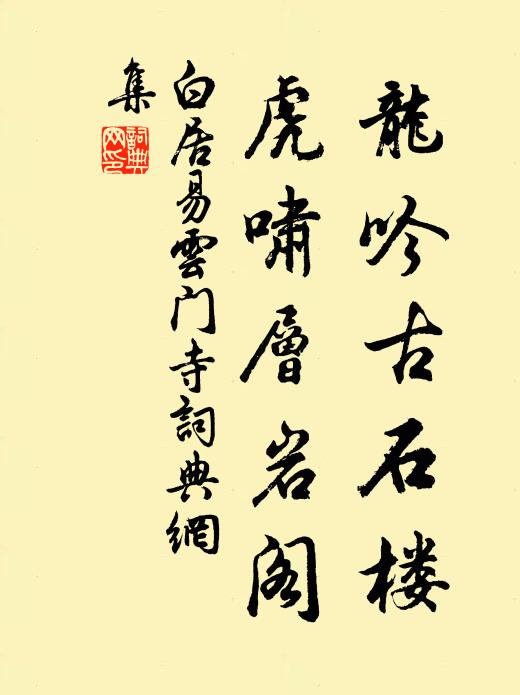 龍吟古石楼
虎嘯層岩阁
白居易雲门寺詞典網
集
詞典
网印